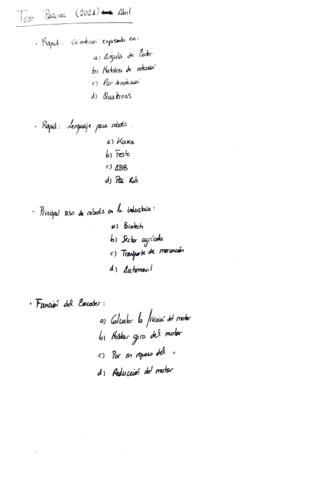 Test Parcial (2021) Abril
· Rapid: Orientación expresada en:
a) Ángulo de Euler
b) Matrices de rotación
c) Par de rotación
d) Quaternios
· Rapid: Lenguaje para robots.
a) Kuka
b) Festo
c) ABB
d)
· Principal uso de robots en la industria:
a) Biotech
b) Sector agrícola
c) Transporte de mercancía
d) Automóvil
· Función del Encoder:
a) Calcular la fricción del motor
b) Medir giro del motor
c) Par en reposo del "
d) Reducción del motor